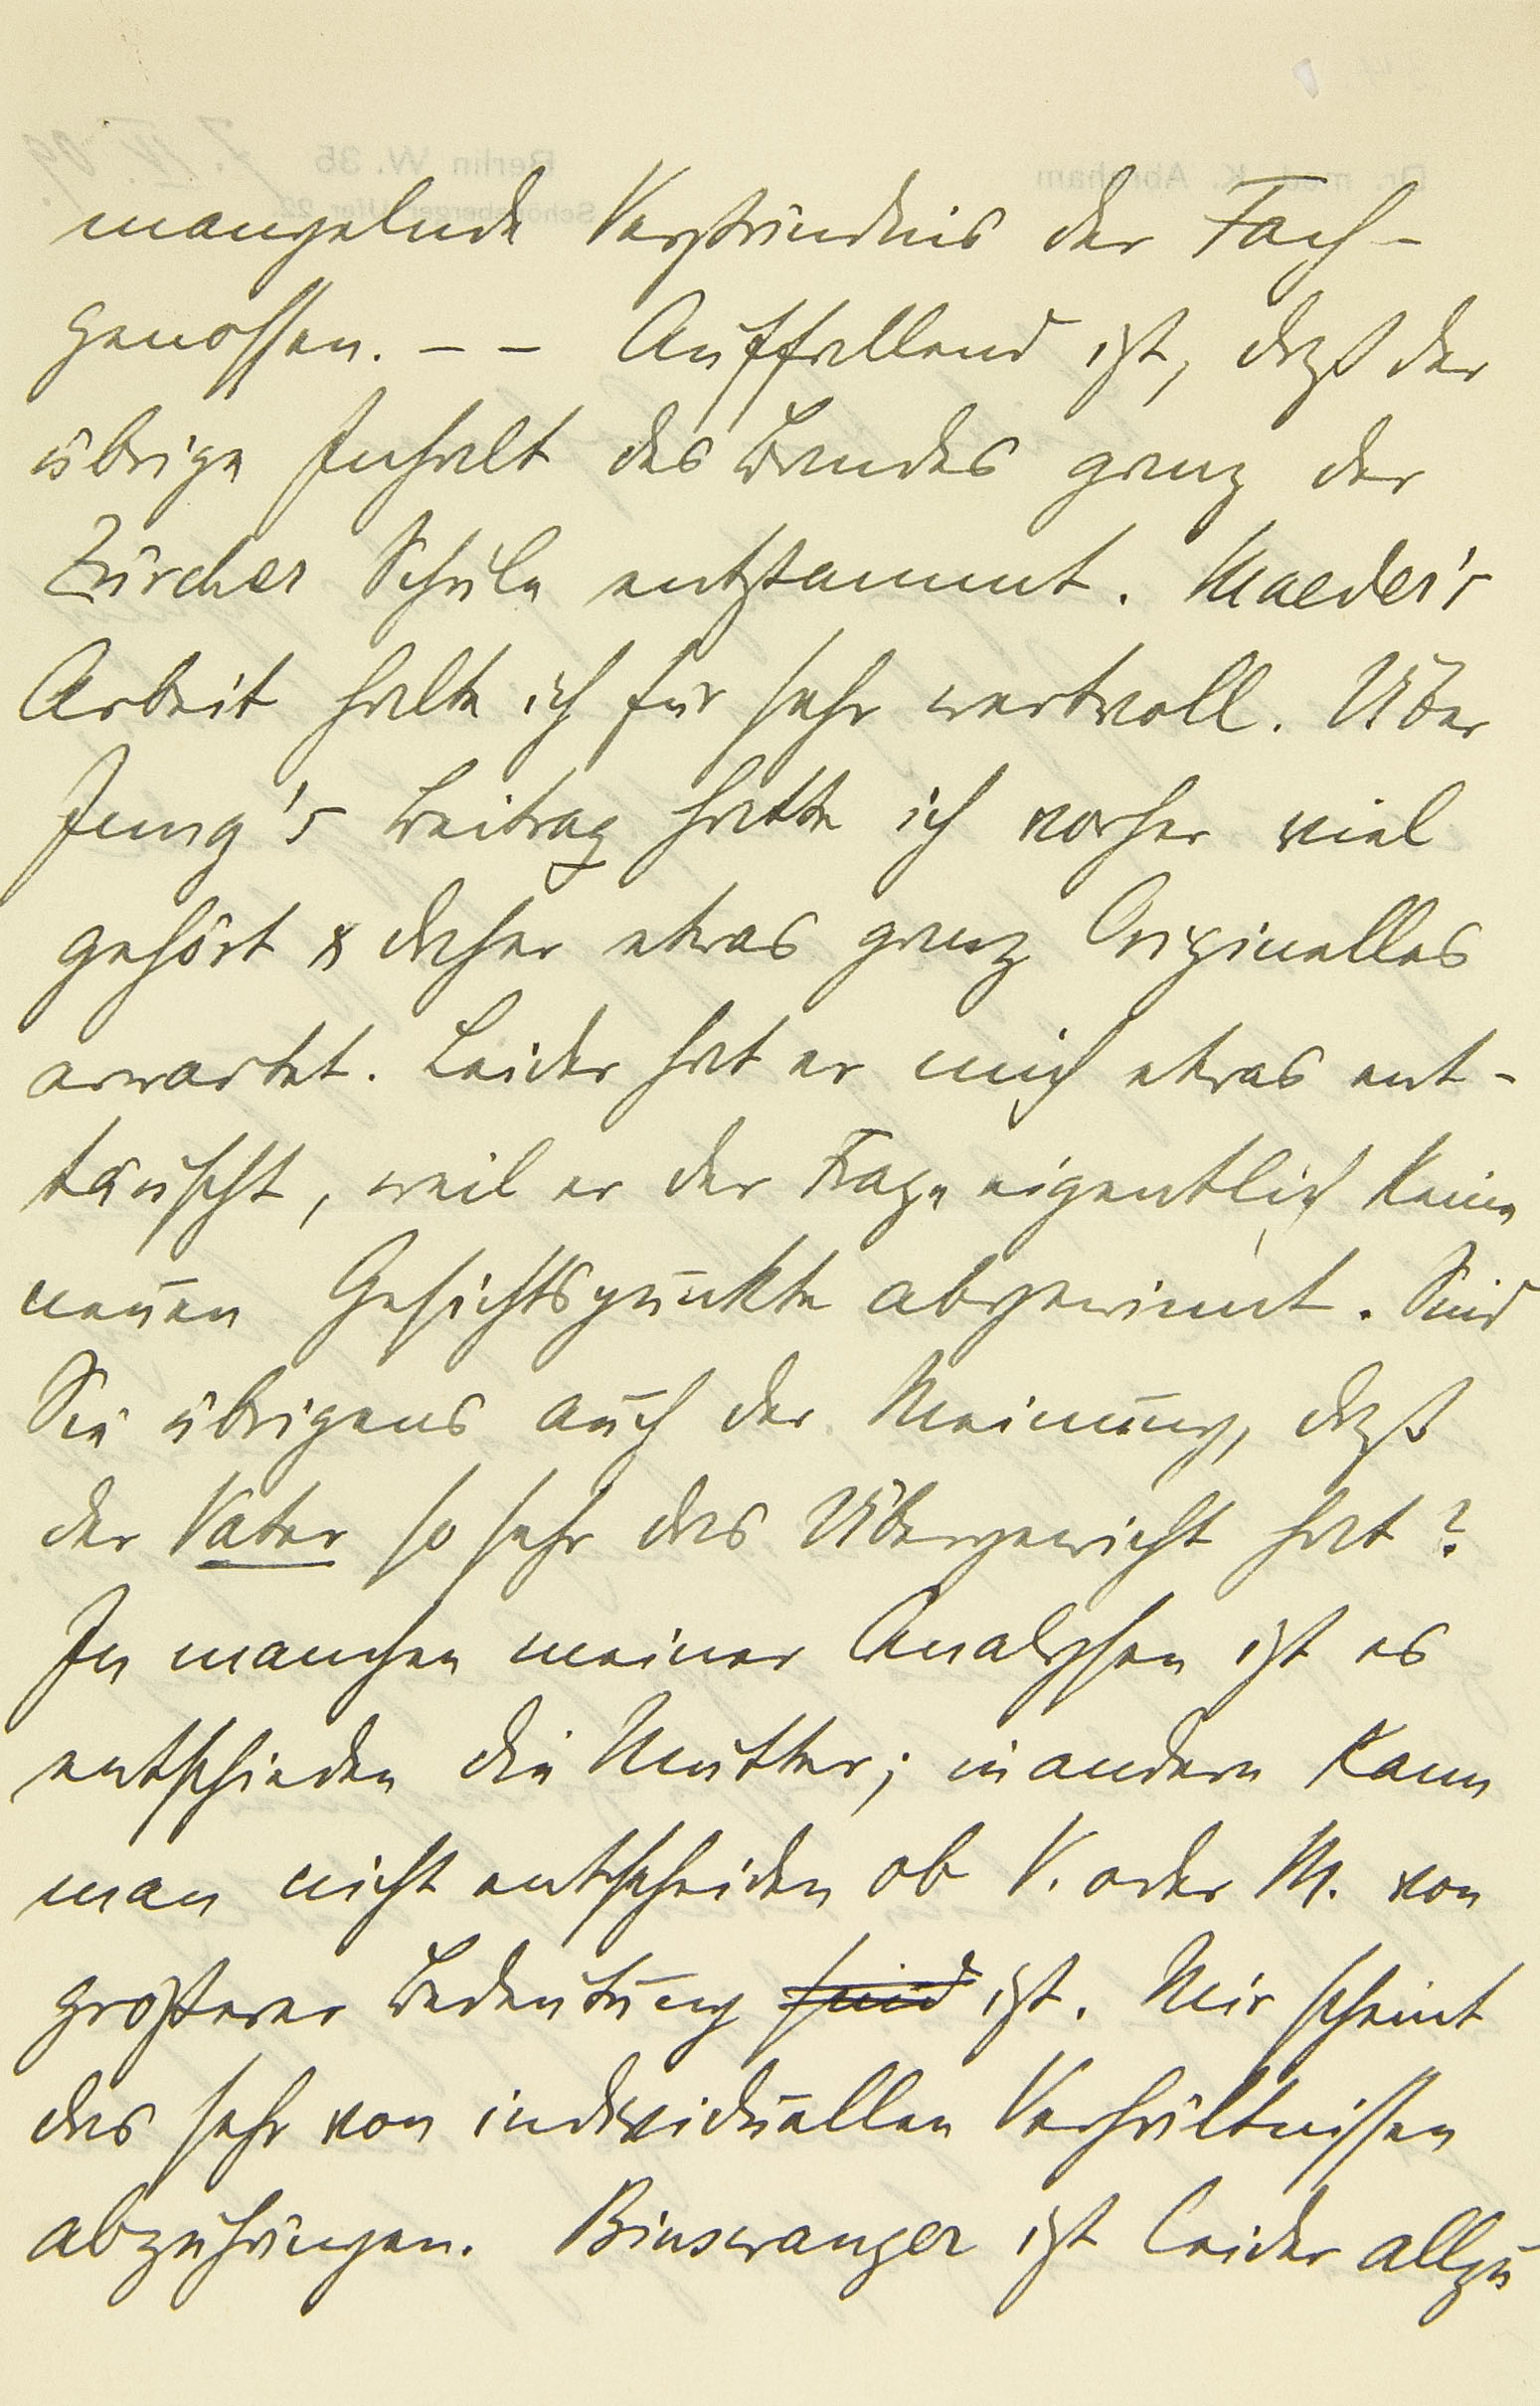 mangelnde Verständnis der Fach-
genossen. – – Auffallend ist, daß der
übrige Inhalt des Bandes ganz der
Zürcher Schule entstammt. Maeder's
Arbeit halte ich für sehr wertvoll. Über
Jung's Beitrag hatte ich vorher viel
gehört & daher etwas ganz Originelles
erwartet. Leider hat er mich etwas ent-
täuscht, weil er der Frage eigentlich keine
neuen Gesichtspunkte abgewinnt. Sind
Sie übrigens auch der Meinung, daß
der Vater so sehr das Übergewicht hat?
In manchen meiner Analysen ist es
entschieden die Mutter; in andern kann
man nicht entscheiden ob V. oder M. von
größerer Bedeutung sind ist. Mir scheint
das sehr von individuellen Verhältnissen
abzuhängen. Binswanger ist leider allzu